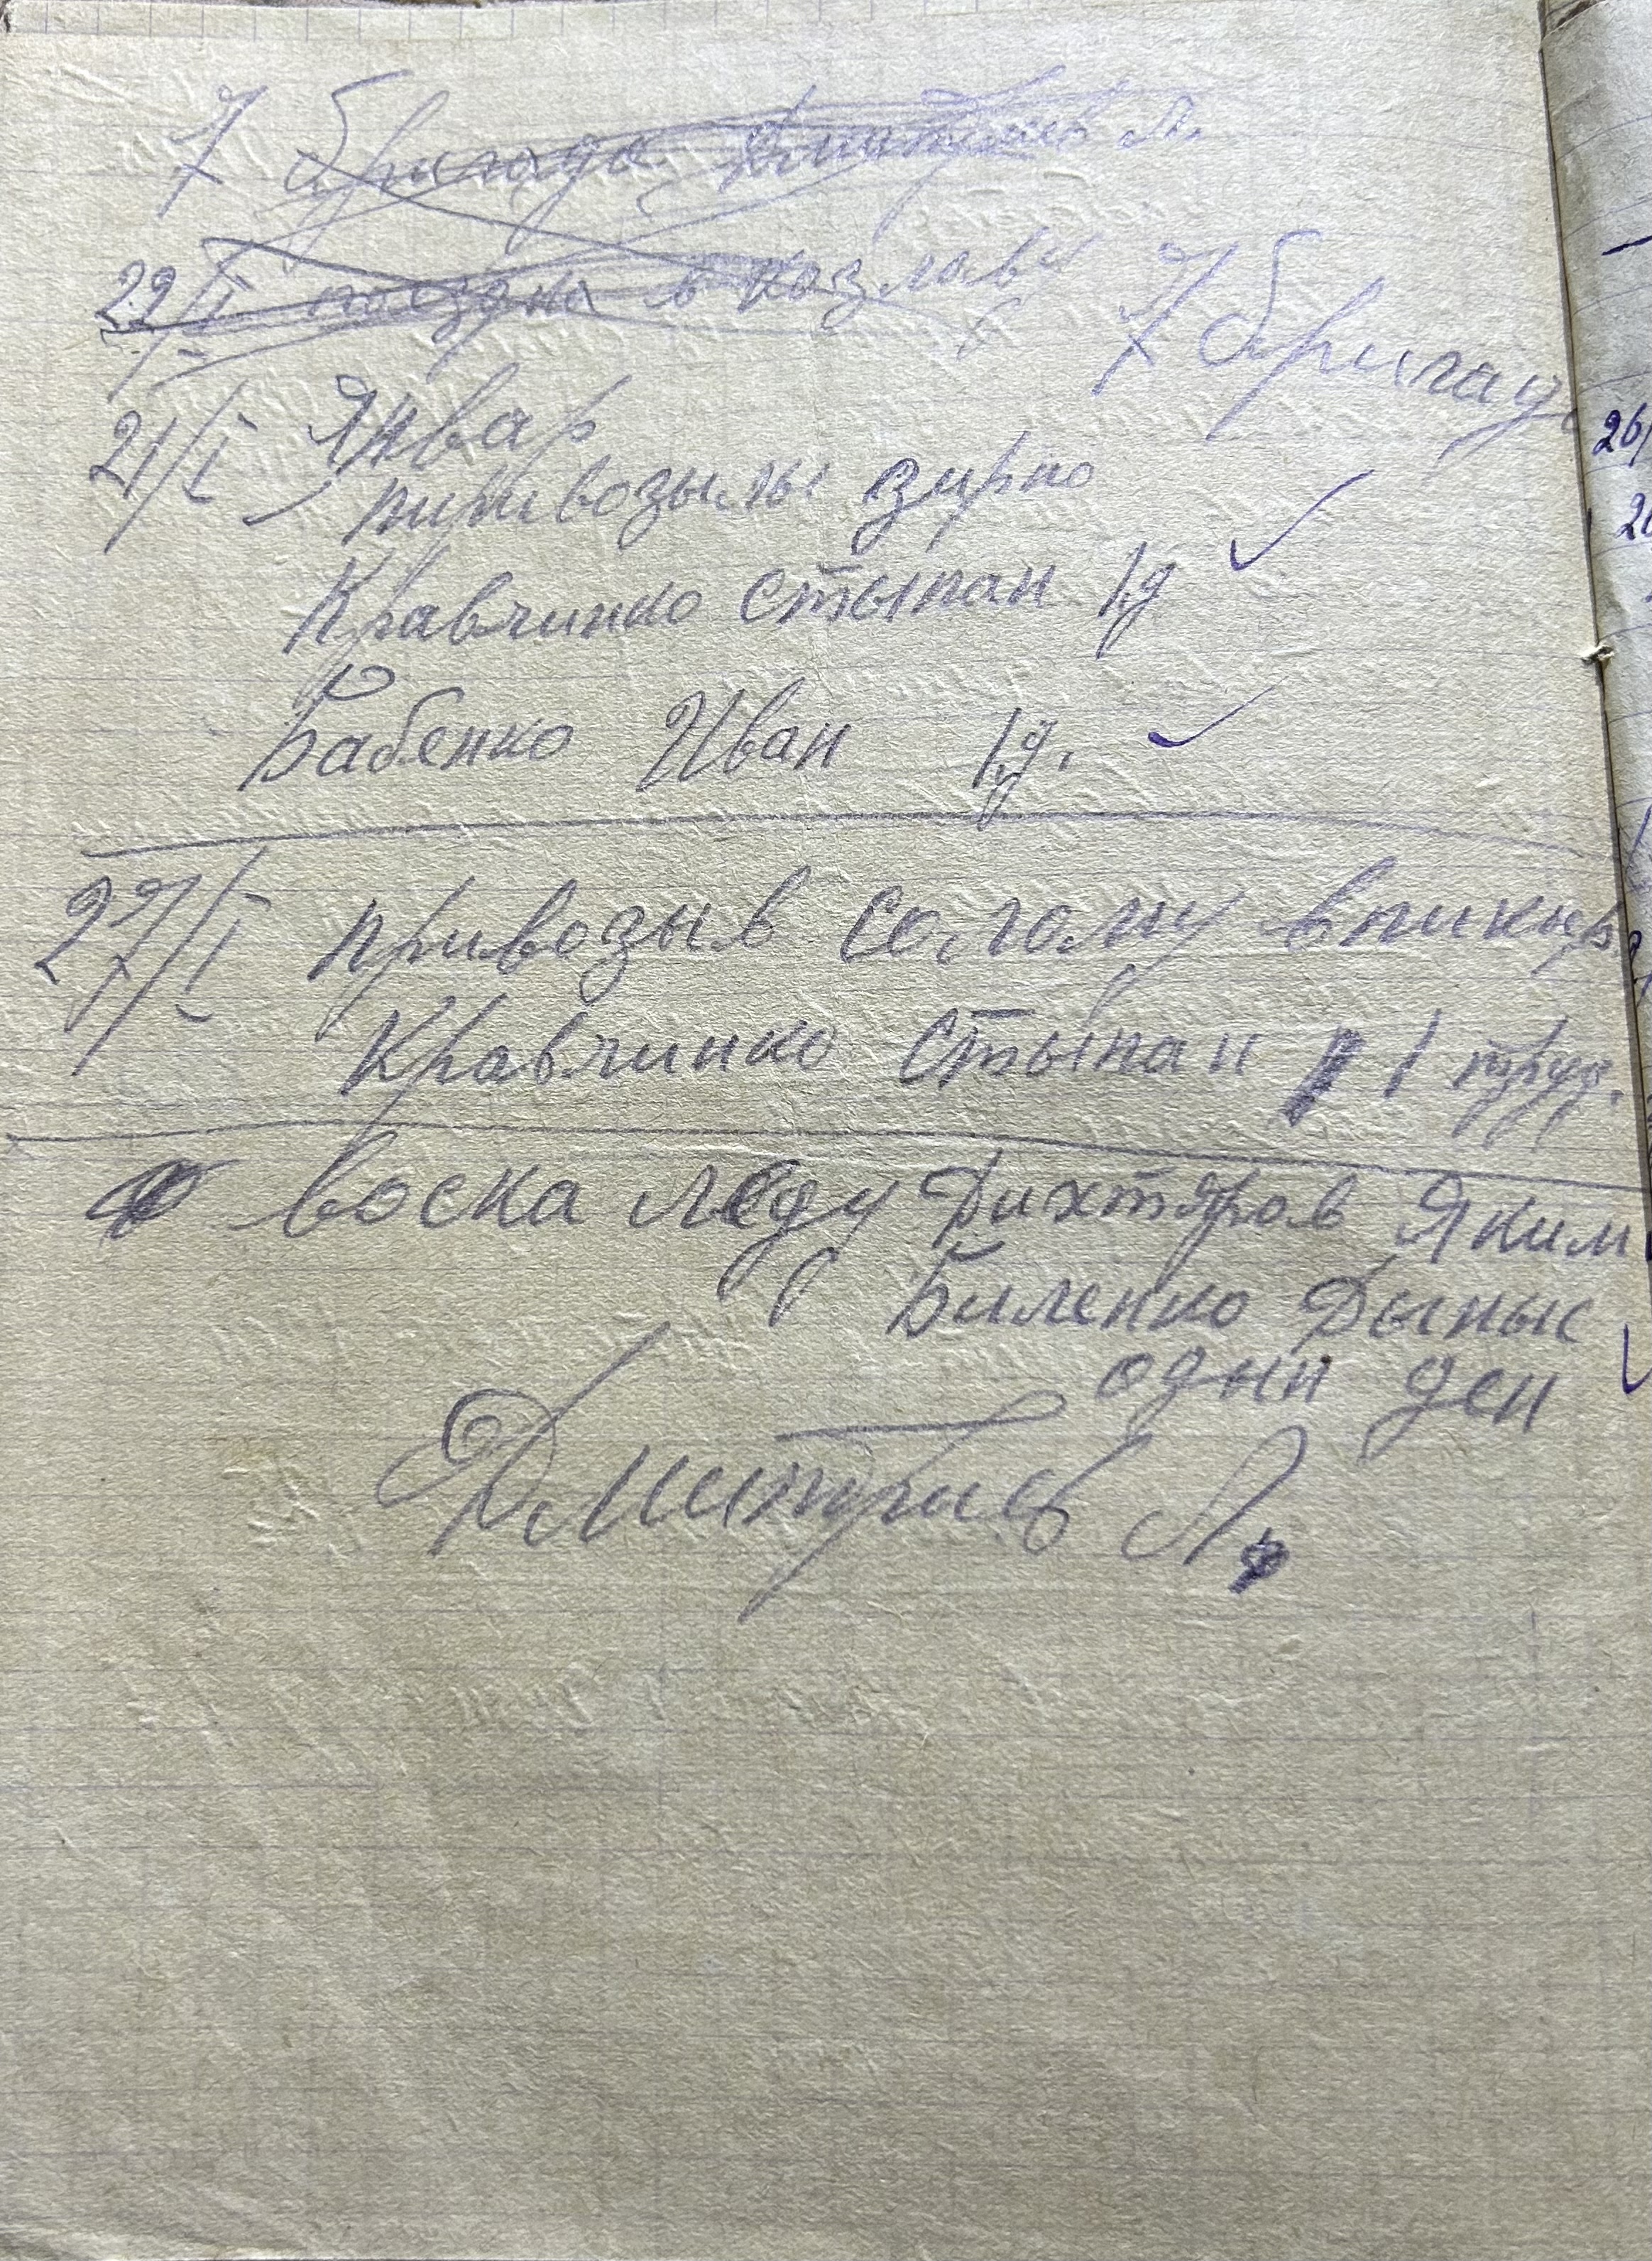 7 бригада Дмитриев Л.
22/I поездка в Козлавы
7 бригад
21/I Январ
пиривозылы зирно
Кравчинко Стыпан 1д
Бабенко Иван 1д.
27/I привозыв солому
Кравчинко Стыпан 1 труд.
воска леду Дихтяров Яким
Биленко Дыныс
одын ден
Дмитриев Л.